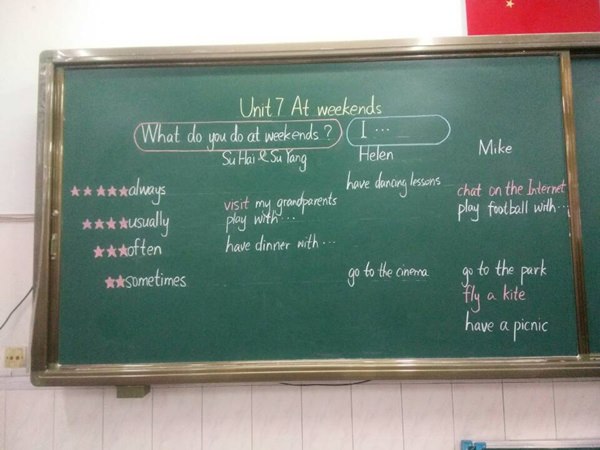 Unit 7 At weekends
What do you do at weekends ? I ...
Su Hai & Su Yang Helen Mike
always have dancing lessons chat on the Internet
usually visit my grandparents play football with...
play with...
often have dinner with ...
sometimes go to the cinema go to the park
fly a kite
have a picnic